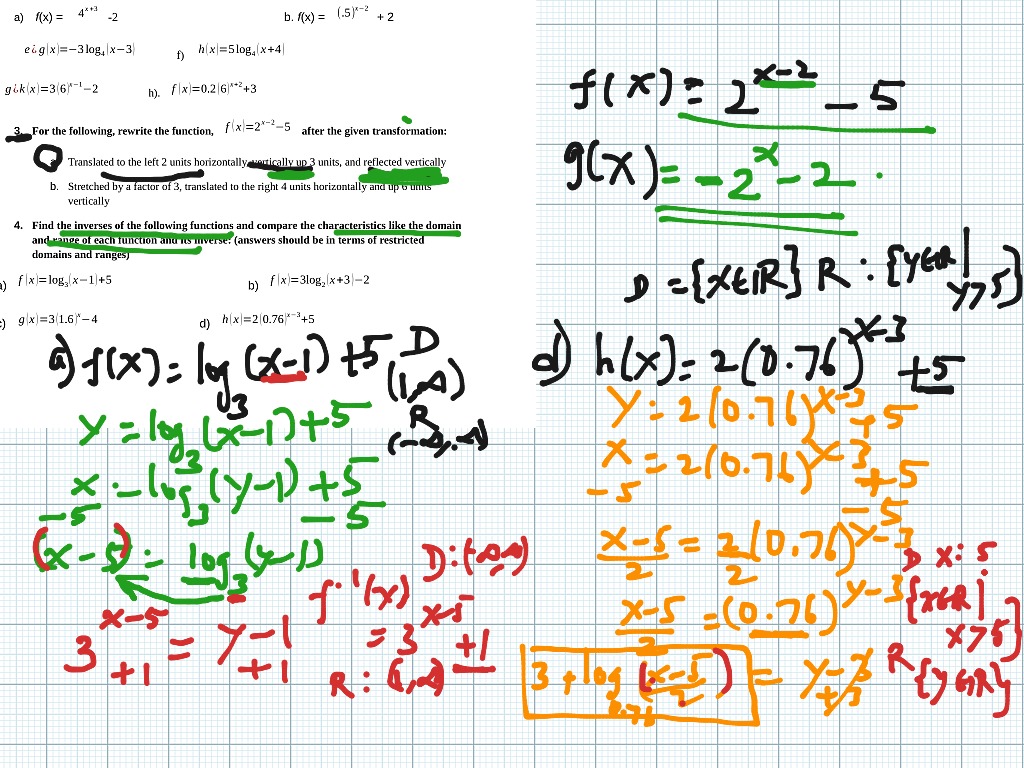 a) f(x) = 4^{x+3} -2
b. f(x) = (.5)^{x−2} + 2
e¿ g(x)=−3 log₄(x−3)
f) h(x)=5 log₄(x+4)
g¿ k(x)=3(6)^{x−1}−2
h). f(x)=0.2(6)^{x+2}+3
3. For the following, rewrite the function, f(x)=2^{x−2}−5 after the given transformation:
a. Translated to the left 2 units horizontally, vertically up 3 units, and reflected vertically
b. Stretched by a factor of 3, translated to the right 4 units horizontally and up 6 units
vertically
4. Find the inverses of the following functions and compare the characteristics like the domain
and range of each function and its inverse. (answers should be in terms of restricted
domains and ranges)
a) f(x)=log₃(x−1)+5
b) f(x)=3log₂(x+3)−2
c) g(x)=3(1.6)^x−4
d) h(x)=2(0.76)^{x−3}+5
a) f(x) = log₃(x-1) +5
D
(1,∞)
R
(-∞,∞)
y = log₃(x-1)+5
x = log₃(y-1) +5
-5 -5
(x-5) = log₃(y-1)
D:(-∞,∞)
3^{x-5} = y-1
+1 +1
f^{-1}(x)
= 3^{x-5} +1
R : (1,∞)
f(x) = 2^{x-2} - 5
g(x) = -2^x - 2 .
D = {x∈R} R : {y∈R | y>5}
d) h(x) = 2(0.76)^{x-3} +5
y = 2(0.76)^{x-3} +5
x = 2(0.76)^{x-3} +5
-5 -5
x-5 = 2(0.76)^{y-3}
2 2
x-5 = (0.76)^{y-3}
2
3 + log_{0.76} (x-5/2) = y-3
+3
D x: 5
{x∈R | x>5}
R {y∈R}